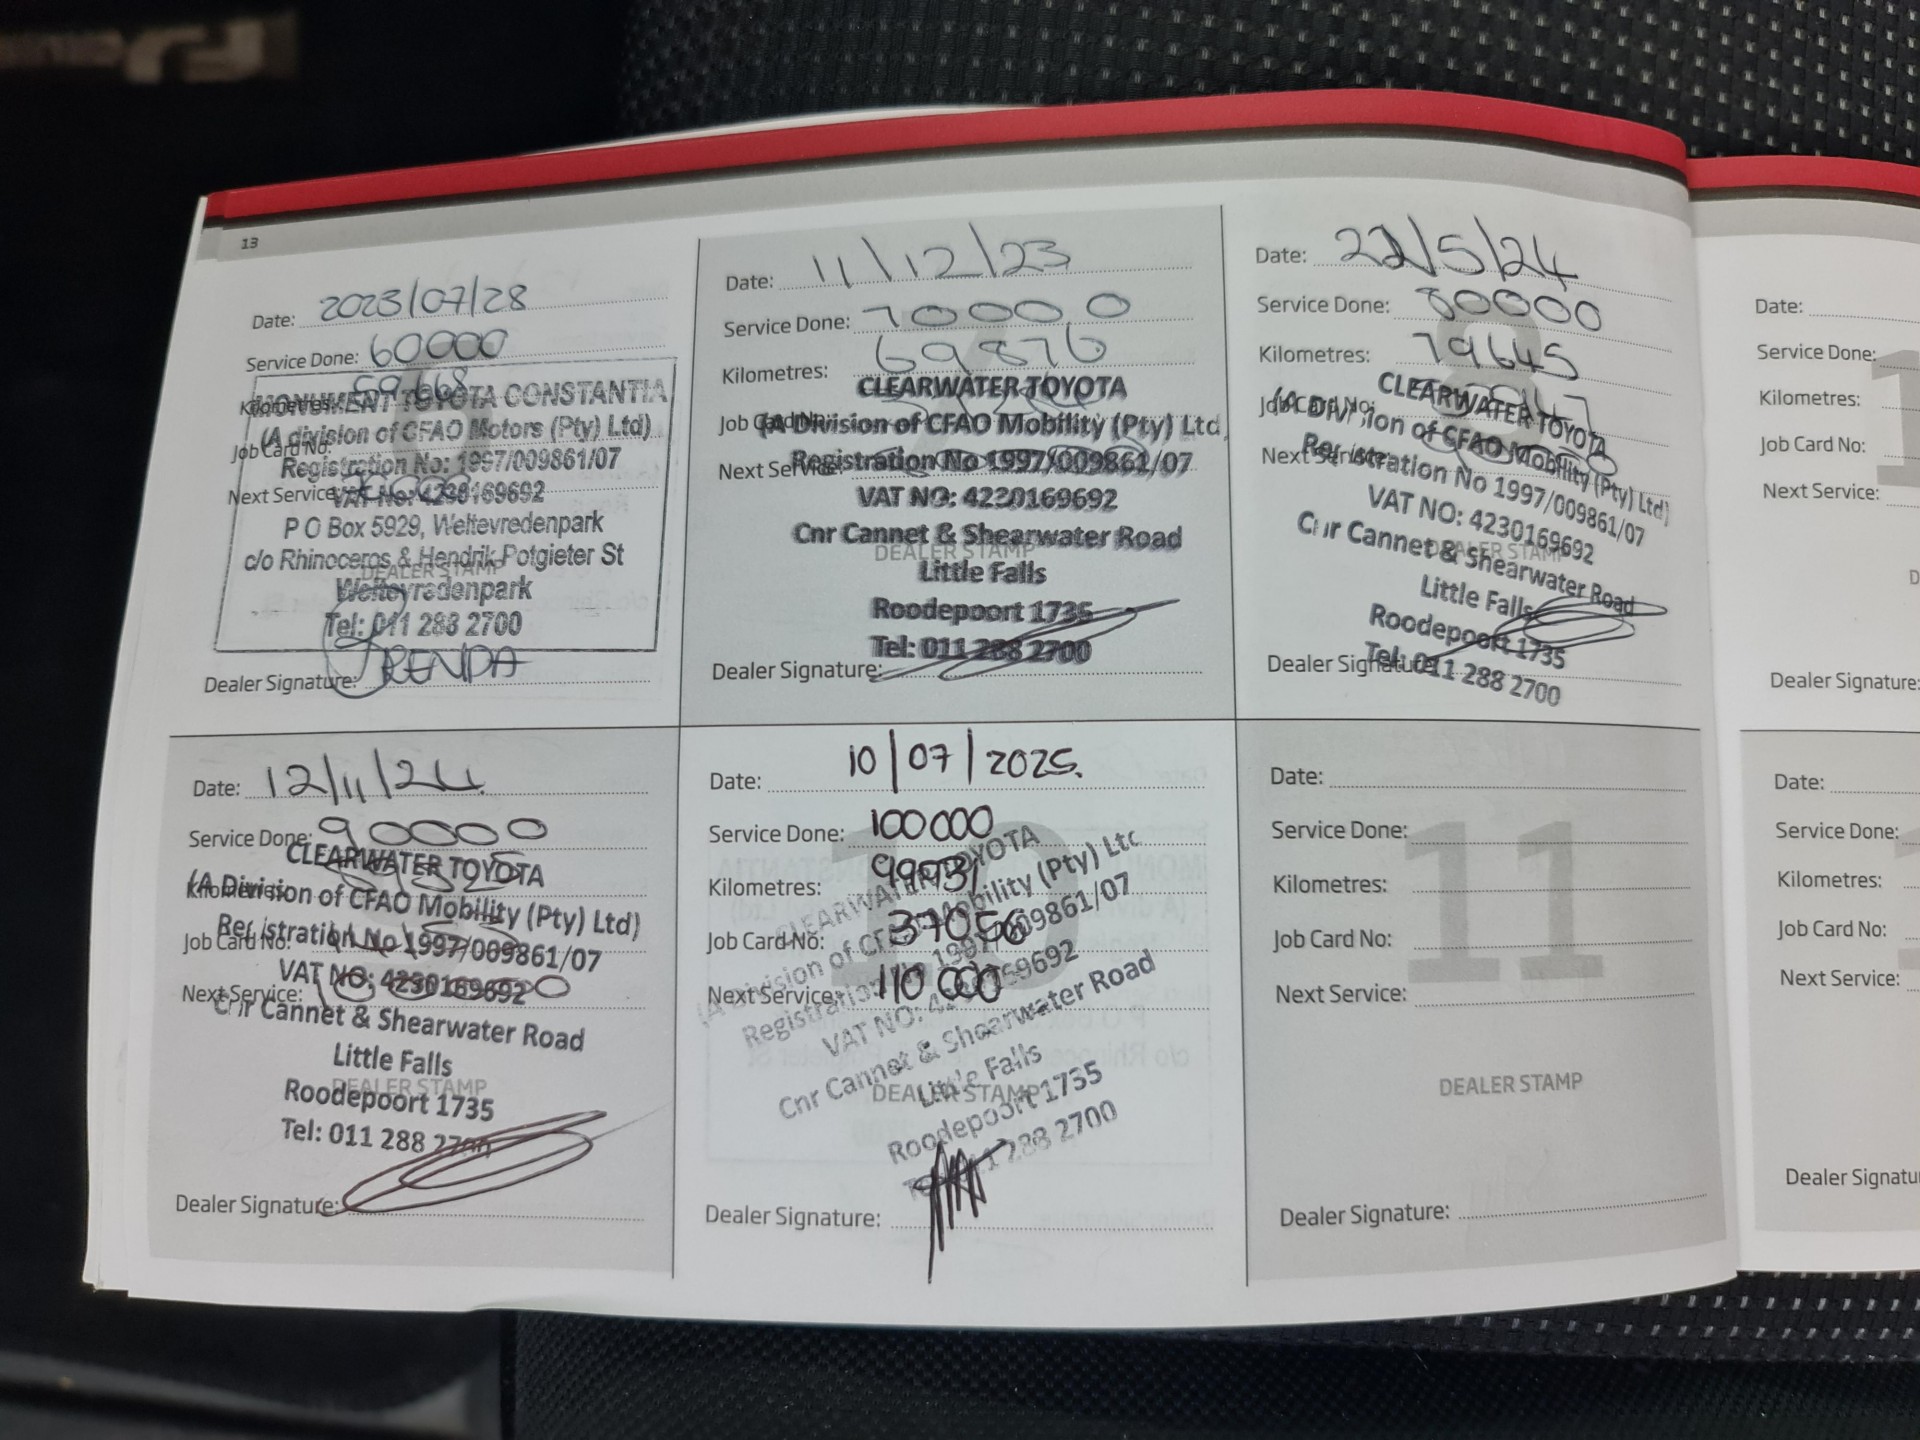 13
Date: 2023/07/28
Service Done: 60000
Kilometres:
MONUMENT TOYOTA CONSTANTIA
(A division of CFAO Motors (Pty) Ltd)
Job Card No:
Registration No: 1997/009861/07
Next Service:
VAT No: 4230169692
P O Box 5929, Weltevredenpark
c/o Rhinoceros & Hendrik Potgieter St
DEALER STAMP
Weltevredenpark
Tel: 011 288 2700
Dealer Signature: BRENDA
Date: 11/12/23
Service Done: 70000
Kilometres: 69876
CLEARWATER TOYOTA
Job Card No:
(A Division of CFAO Mobility (Pty) Ltd
Next Service:
Registration No 1997/009861/07
VAT NO: 4230169692
Cnr Cannet & Shearwater Road
DEALER STAMP
Little Falls
Roodepoort 1735
Tel: 011 288 2700
Dealer Signature:
Date: 22/5/24
Service Done: 80000
Kilometres: 79645
CLEARWATER TOYOTA
Job Card No:
(A Division of CFAO Mobility (Pty) Ltd)
Next Service:
Registration No 1997/009861/07
VAT NO: 4230169692
Cnr Cannet & Shearwater Road
DEALER STAMP
Little Falls
Roodepoort 1735
Tel: 011 288 2700
Dealer Signature:
Date: 12/11/24
Service Done: 90000
CLEARWATER TOYOTA
Kilometres:
(A Division of CFAO Mobility (Pty) Ltd)
Job Card No:
Registration No 1997/009861/07
VAT NO: 4230169692
Next Service: 100000
Cnr Cannet & Shearwater Road
Little Falls
DEALER STAMP
Roodepoort 1735
Tel: 011 288 2700
Dealer Signature:
10
Date: 10/07/2025.
Service Done: 100000
Kilometres: 99931
Job Card No: 37056
Next Service: 110 000
CLEARWATER TOYOTA
(A Division of CFAO Mobility (Pty) Ltd
Registration No 1997/009861/07
VAT NO: 4230169692
Cnr Cannet & Shearwater Road
DEALER STAMP
Little Falls
Roodepoort 1735
Tel: 011 288 2700
Dealer Signature:
11
Date:
Service Done:
Kilometres:
Job Card No:
Next Service:
DEALER STAMP
Dealer Signature:
Date:
Service Done:
Kilometres:
Job Card No:
Next Service:
Dealer Signature:
Date:
Service Done:
Kilometres:
Job Card No:
Next Service: